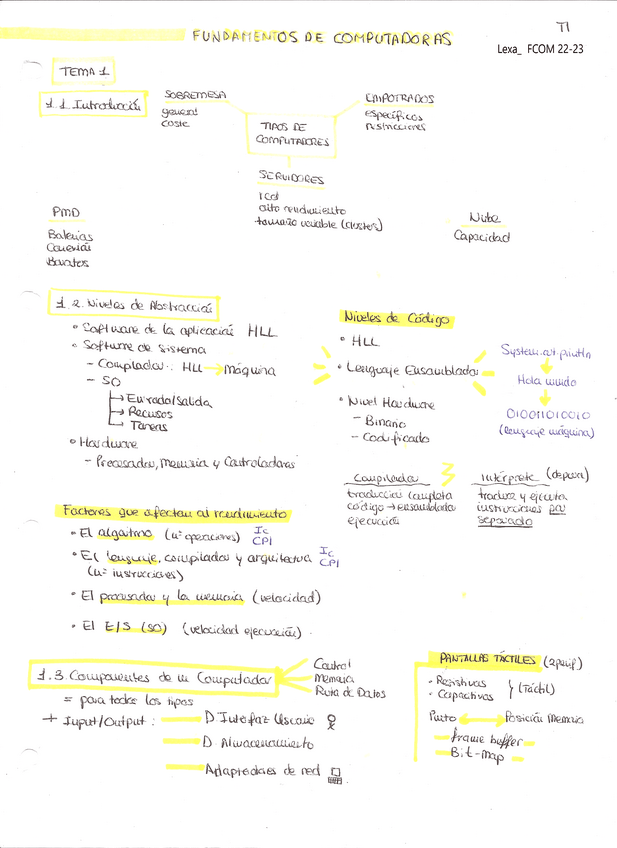 FUNDAMENTOS DE COMPUTADORAS
T1
Lexa_ FCOM 22-23
TEMA 1
1.1 Introducción
SOBREMESA
general
coste
TIPOS DE
COMPUTADORES
EMPOTRADOS
específicos
restricciones
SERVIDORES
red
alto rendimiento
tamaño variable (clusters)
PMD
Baterías
Conexión
Baratos
Nube
Capacidad
1.2. Niveles de Abstracción
• Software de la aplicación HLL
• Software de Sistema
- Compilador: HLL → Máquina
- SO
→ Entrada/Salida
→ Recursos
→ Tareas
• Hardware
- Procesador, Memoria y Controladoras
Niveles de Código
• HLL
• Lenguaje Ensamblador
• Nivel Hardware
- Binario
- Codificado
System.out.println
Hola mundo
010011010010
(lenguaje máquina)
Compilador
traducción completa
código → ensamblador
ejecución
Intérprete (depura)
traduce y ejecuta
instrucciones por
separado
Factores que afectan al rendimiento
• El algoritmo (nº operaciones) Ic
CPI
• El lenguaje, compilador y arquitectura Ic
CPI
(nº instrucciones)
• El procesador y la memoria (velocidad)
• El E/S (SO) (velocidad ejecución)
1.3. Componentes de un Computador
Control
Memoria
Ruta de Datos
= para todos los tipos
+ Input/Output:
D Interfaz Usuario
D Almacenamiento
Adaptadores de red
PANTALLAS TÁCTILES (2 perif)
• Resistivas
• Capacitivas
} (Táctil)
Punto ↔ Posición Memoria
frame buffer
Bit-map